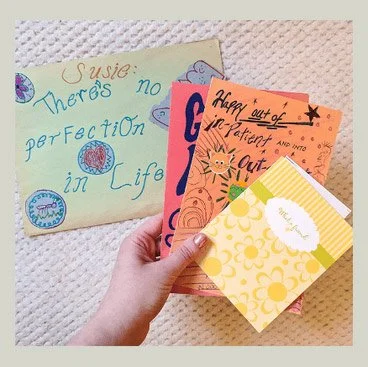 Susie:
There's no
perfection
in Life
Happy out of
inPatient AND INTO
Out-